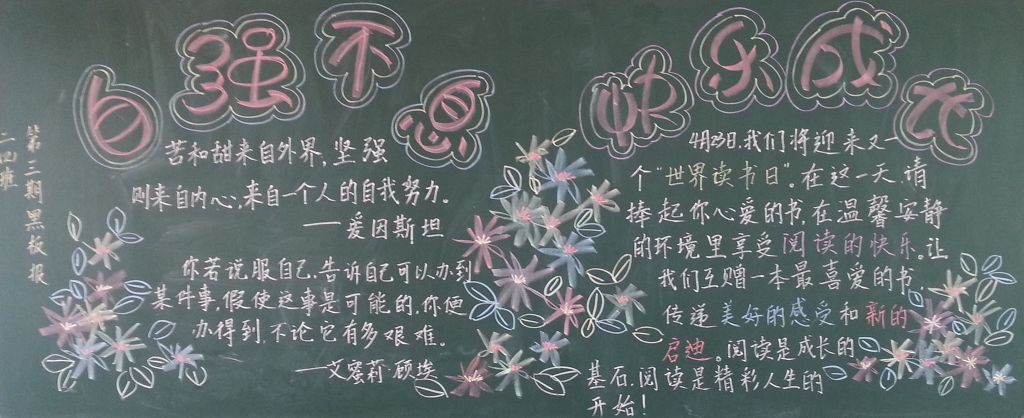 自强不息
苦和甜来自外界，坚强
则来自内心，来自一个人的自我努力。
——爱因斯坦
你若说服自己，告诉自己可以办到
某件事，假使这事是可能的，你便
办得到，不论它有多艰难。
——艾蜜莉·顾埃
快乐成长
4月23日，我们将迎来又一
个“世界读书日”。在这一天，请
捧起你心爱的书，在温馨安静
的环境里享受阅读的快乐。让
我们互赠一本最喜爱的书，
传递美好的感受和新的
启迪。阅读是成长的
基石，阅读是精彩人生的
开始！
第三期黑板报
二四班